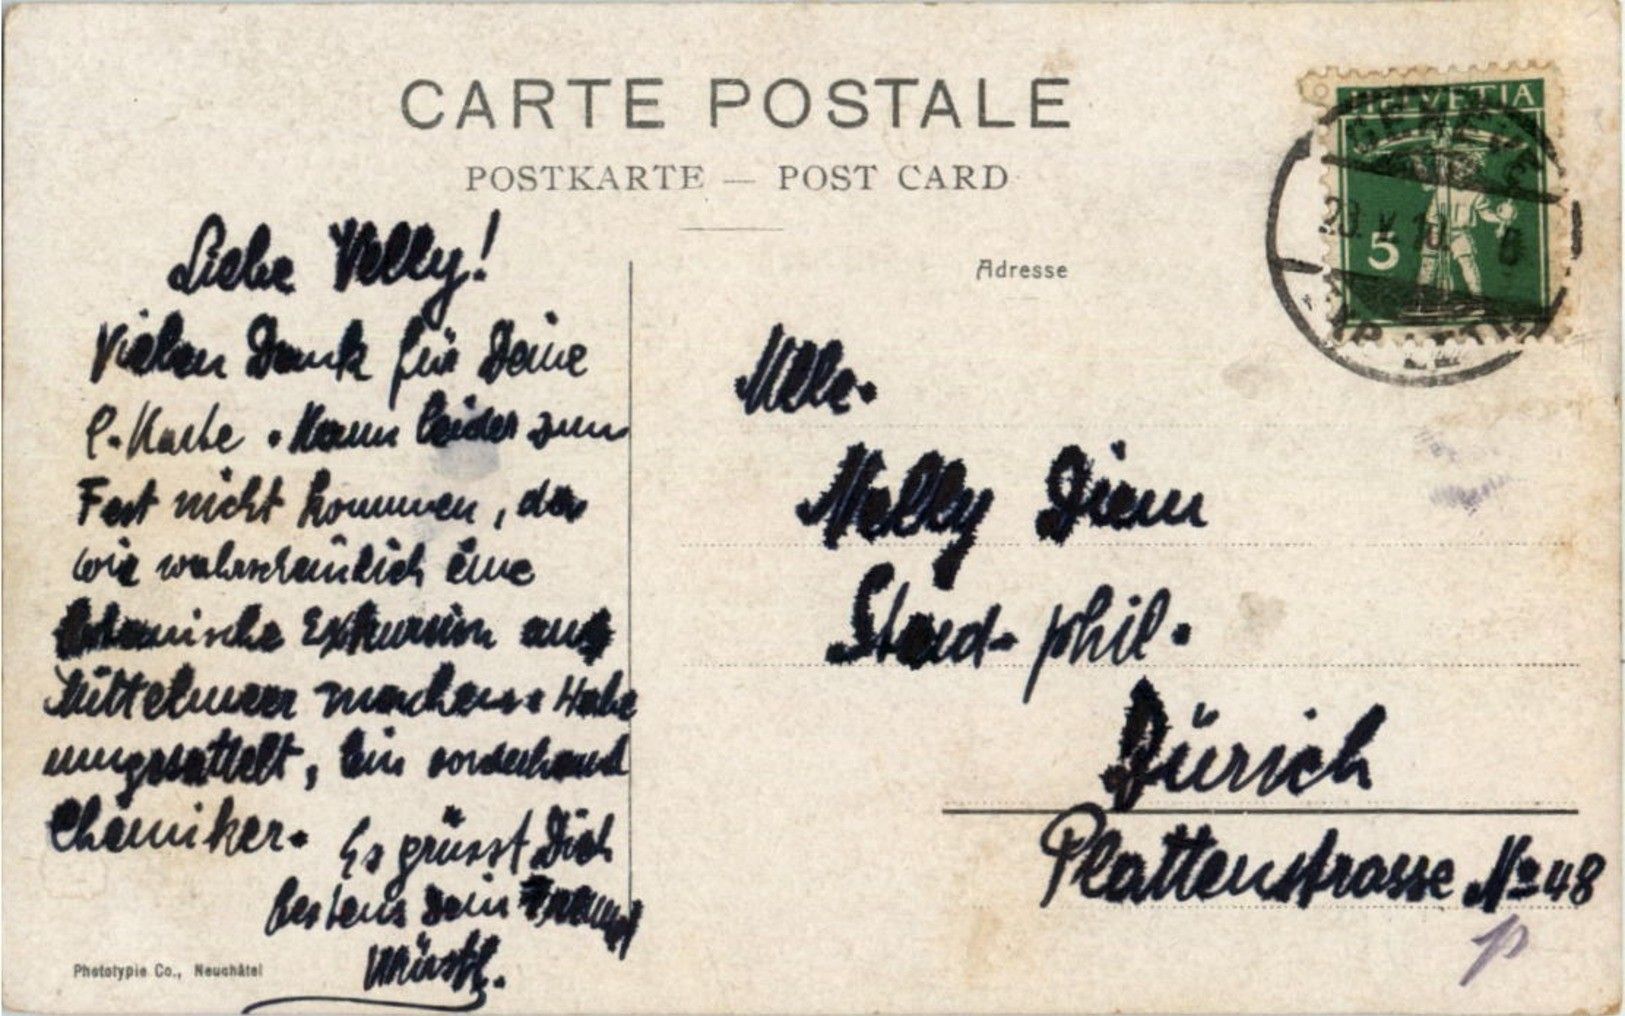 CARTE POSTALE
POSTKARTE — POST CARD
Adresse
HELVETIA
5
GENÈVE
20 V 10
Liebe Nelly!
Vielen Dank für Deine
l. Karte. Kann leider zum
Fest nicht kommen, da
wir wahrscheinlich eine
botanische Exkursion ans
Mittelmeer machen. Habe
umgesattelt, bin vorderhand
Chemiker. Es grüsst Dich
bestens Dein
Würstl.
Phototypie Co., Neuchâtel
Mlle.
Nelly Diem
Stud. phil.
Zürich
Plattenstrasse No 48